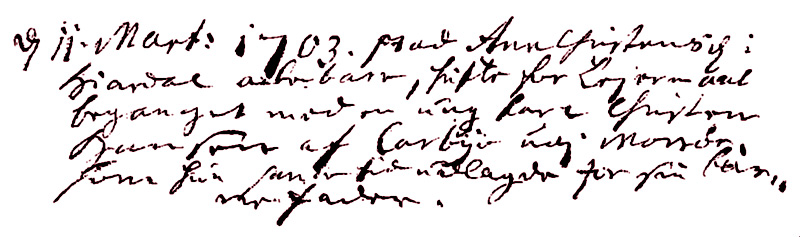 d 11. Mart: 1703. stod Ane Christensd: i
Hiardal aabenbare, skrifte for Leiermaal
beganget med en ung karl Christen
Hansen af Carbye udj Morsøe
som hun samme tid udlagde for sin bar„
ne fader.